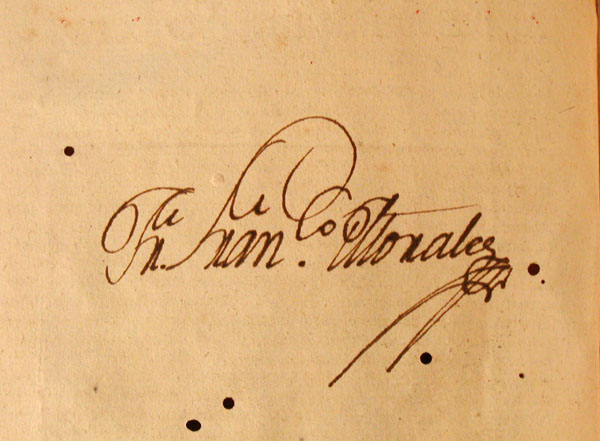 Fr. Fran.co Morales